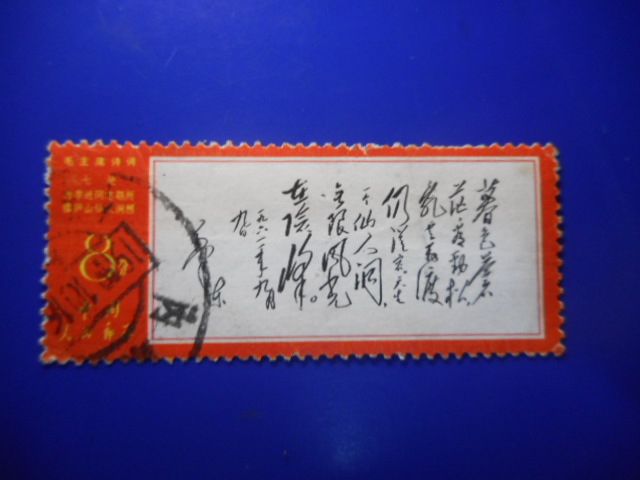 毛主席诗词
七绝
为李进同志题所
摄庐山仙人洞照
8分
中国
人民邮政
暮色苍
茫看劲松
乱云飞渡
仍从容天生
一个仙人洞,
无限风光
在险峰。
一九六一年九月
九日
毛泽东